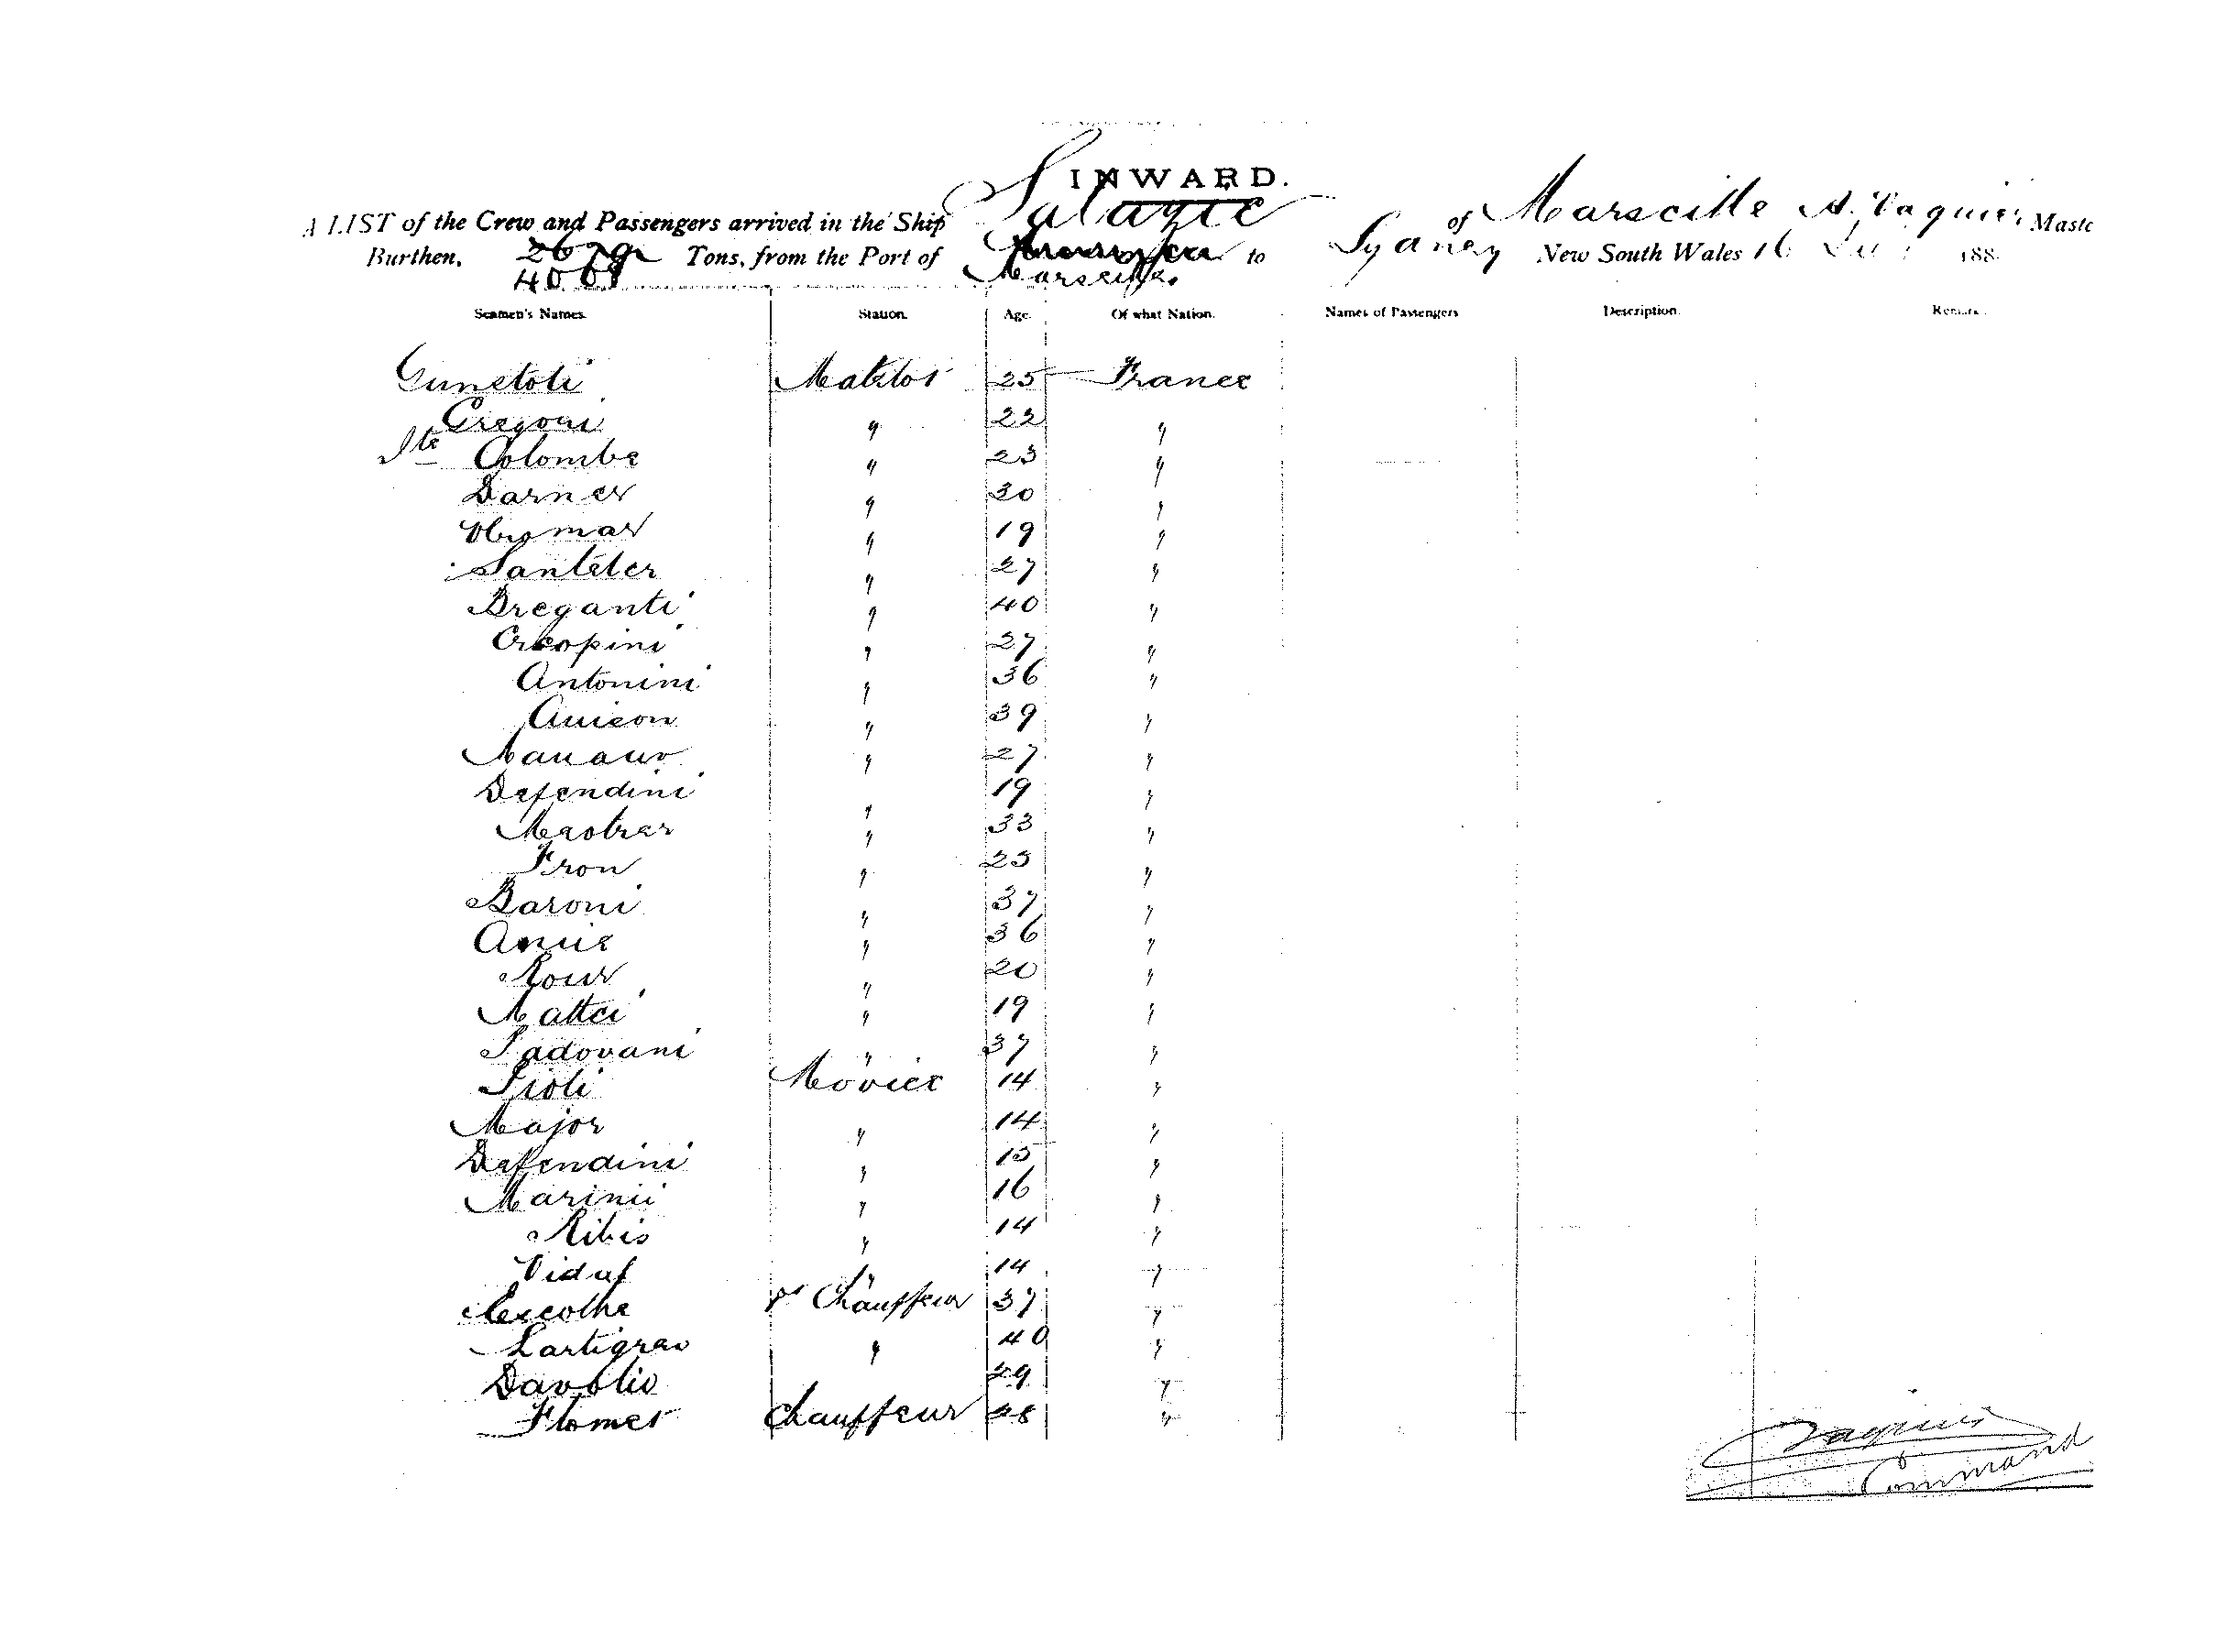 INWARD.
A LIST of the Crew and Passengers arrived in the Ship Salazie of Marseille A. Vaquier, Maste
Burthen, Tons, from the Port of Marseille to Sydney New South Wales 16 188
4009
Seamen's Names. Station. Age. Of what Nation. Names of Passengers Description. Remarks.
Matelot 25 France
Gregori " 22 "
Ste Colombe " 23 "
Darner " 30 "
" 19 "
Santeter " 27 "
Breganti " 40 "
" 27 "
Antonini " 36 "
" 39 "
" 27 "
Defendini " 19 "
" 33 "
Fron " 25 "
Baroni " 37 "
" 36 "
Roux " 20 "
Mattei " 19 "
Padovani " 37 "
Fioli 14 "
Major " 14 "
Defendini " 15 "
Marinii " 16 "
Ribis " 14 "
Vidal " 14 "
Chauffeur 37 "
" 40 "
Davolio 29 "
Chauffeur 28 "
Vaquier
Command